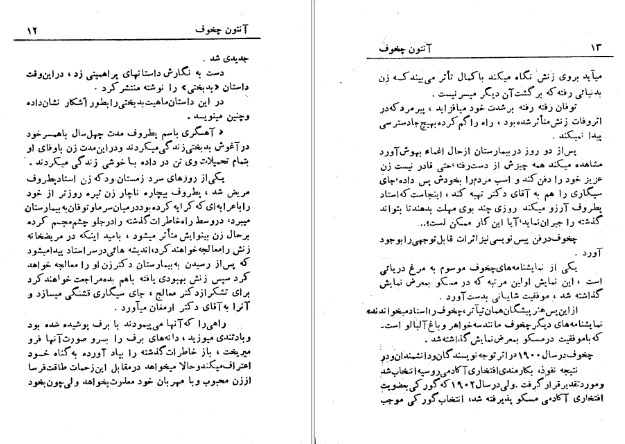 آنتون چخوف ۱۲
جدیدی شد .
دست به نگارش داستانهای پراهمیتی زد ، دراین‌وقت
داستان «بدبختی» را نوشته منتشر کرد .
در این داستان ماهیت بدبختی رابطور آشکار نشان‌داده
وچنین مینویسد .
« آهنگری باسم پطروف مدت چهل سال باهمسر خود
در آغوش بدبختی زندگی میکردند ودراین‌مدت زن باوفای او
بتمام تحمیلات وی تن در داده با خوشی زندگی میکردند .
یکی از روزهای سرد زمستان بود که زن استاد پطروف
مریض شد ، پطروف بیچاره ناچار زن تیره روز تر از خود
را باعرابه‌ای که کرایه کرده بود در میان سرما و توفان به بیمارستان
میبرد، در وسط راه خاطرات گذشته را در جلو چشم مجسم کرده
برحال زن بینوایش متأثر میشود ، بامید اینکه در مریضخانه
زنش را معالجه خواهند کرد اندیشه هائی در سر استاد پیدا میشود
که پس از رسیدن به بیمارستان دکتر زن او را معالجه خواهد
کرد سپس زنش بهبودی یافته باهم بده مراجعت خواهند کرد
برای تشکر از دکتر معالج ، جای سیگاری قشنگی میسازد و
آنرا به آقای دکتر ارمغان میآورد .
راهی را که آنها می‌پیمودند با برف پوشیده شده بود
و باد تندی میوزید ، دانه های برف را بسرو صورت آنها فرو
میریخت ، باز خاطرات گذشته را بیاد آورده به گناه خود
اعتراف میکند وحالا میخواهد در مقابل این زحمات طاقت فرسا
از زن محبوب و با مهربان خود معذرت بخواهد ولی چون بخود
آنتون چخوف ۱۳
میآید بروی زنش نگاه میکند با کمال تأثر می‌بیند که زن
بدنیائی رفته که برگشت آن دیگر میسر نیست .
توفان رفته رفته بر شدت خود میافزاید ، پیرمرد که در
اثر وفات زنش متأثر شده بود ، راه را گم کرده بهیچ جا دسترسی
پیدا نمیکند .
پس از دو روز در بیمارستان از حال اغماء بهوش آورد
مشاهده میکند همه چیزش از دست رفته ، حتی قادر نیست زن
عزیز خود را دفن کند و اسب مردم را بخودش پس داده جای
سیگاری را هم به آقای دکتر تهیه کند ، اینجاست که استاد
پطروف آرزو میکند روزی چند بوی مهلت بدهند تا بتواند
گذشته را جبران نماید، آیا این کار ممکن است؟...
چخوف در فن پیس نویسی نیز اثرات قابل توجهی را بوجود
آورد .
یکی از نمایشنامه های چخوف موسوم به مرغ دریائی
است ، این نمایش اولین مرتبه که در مسکو بمعرض نمایش
گذاشته شد ، موفقیت شایانی بدست آورد .
از این پس هنرپیشگان همان تیآتر، چخوف را استاد میخواندند
نمایشنامه های دیگر چخوف مانند سه خواهر و باغ آلبالو است .
که باموفقیت در مسکو بمعرض نمایش گذاشته شد .
چخوف در سال ۱۹۰۰ در اثر توجه نویسندگان و دانشمندان و در
نتیجه نفوذ، بکارمندی افتخاری آکادمی روسیه انتخاب شد
و مورد تقدیر قرار گرفت . ولی در سال ۱۹۰۲ که گورکی بعضویت
افتخاری آکادمی مسکو پذیرفته شد، انتخاب گورکی موجب